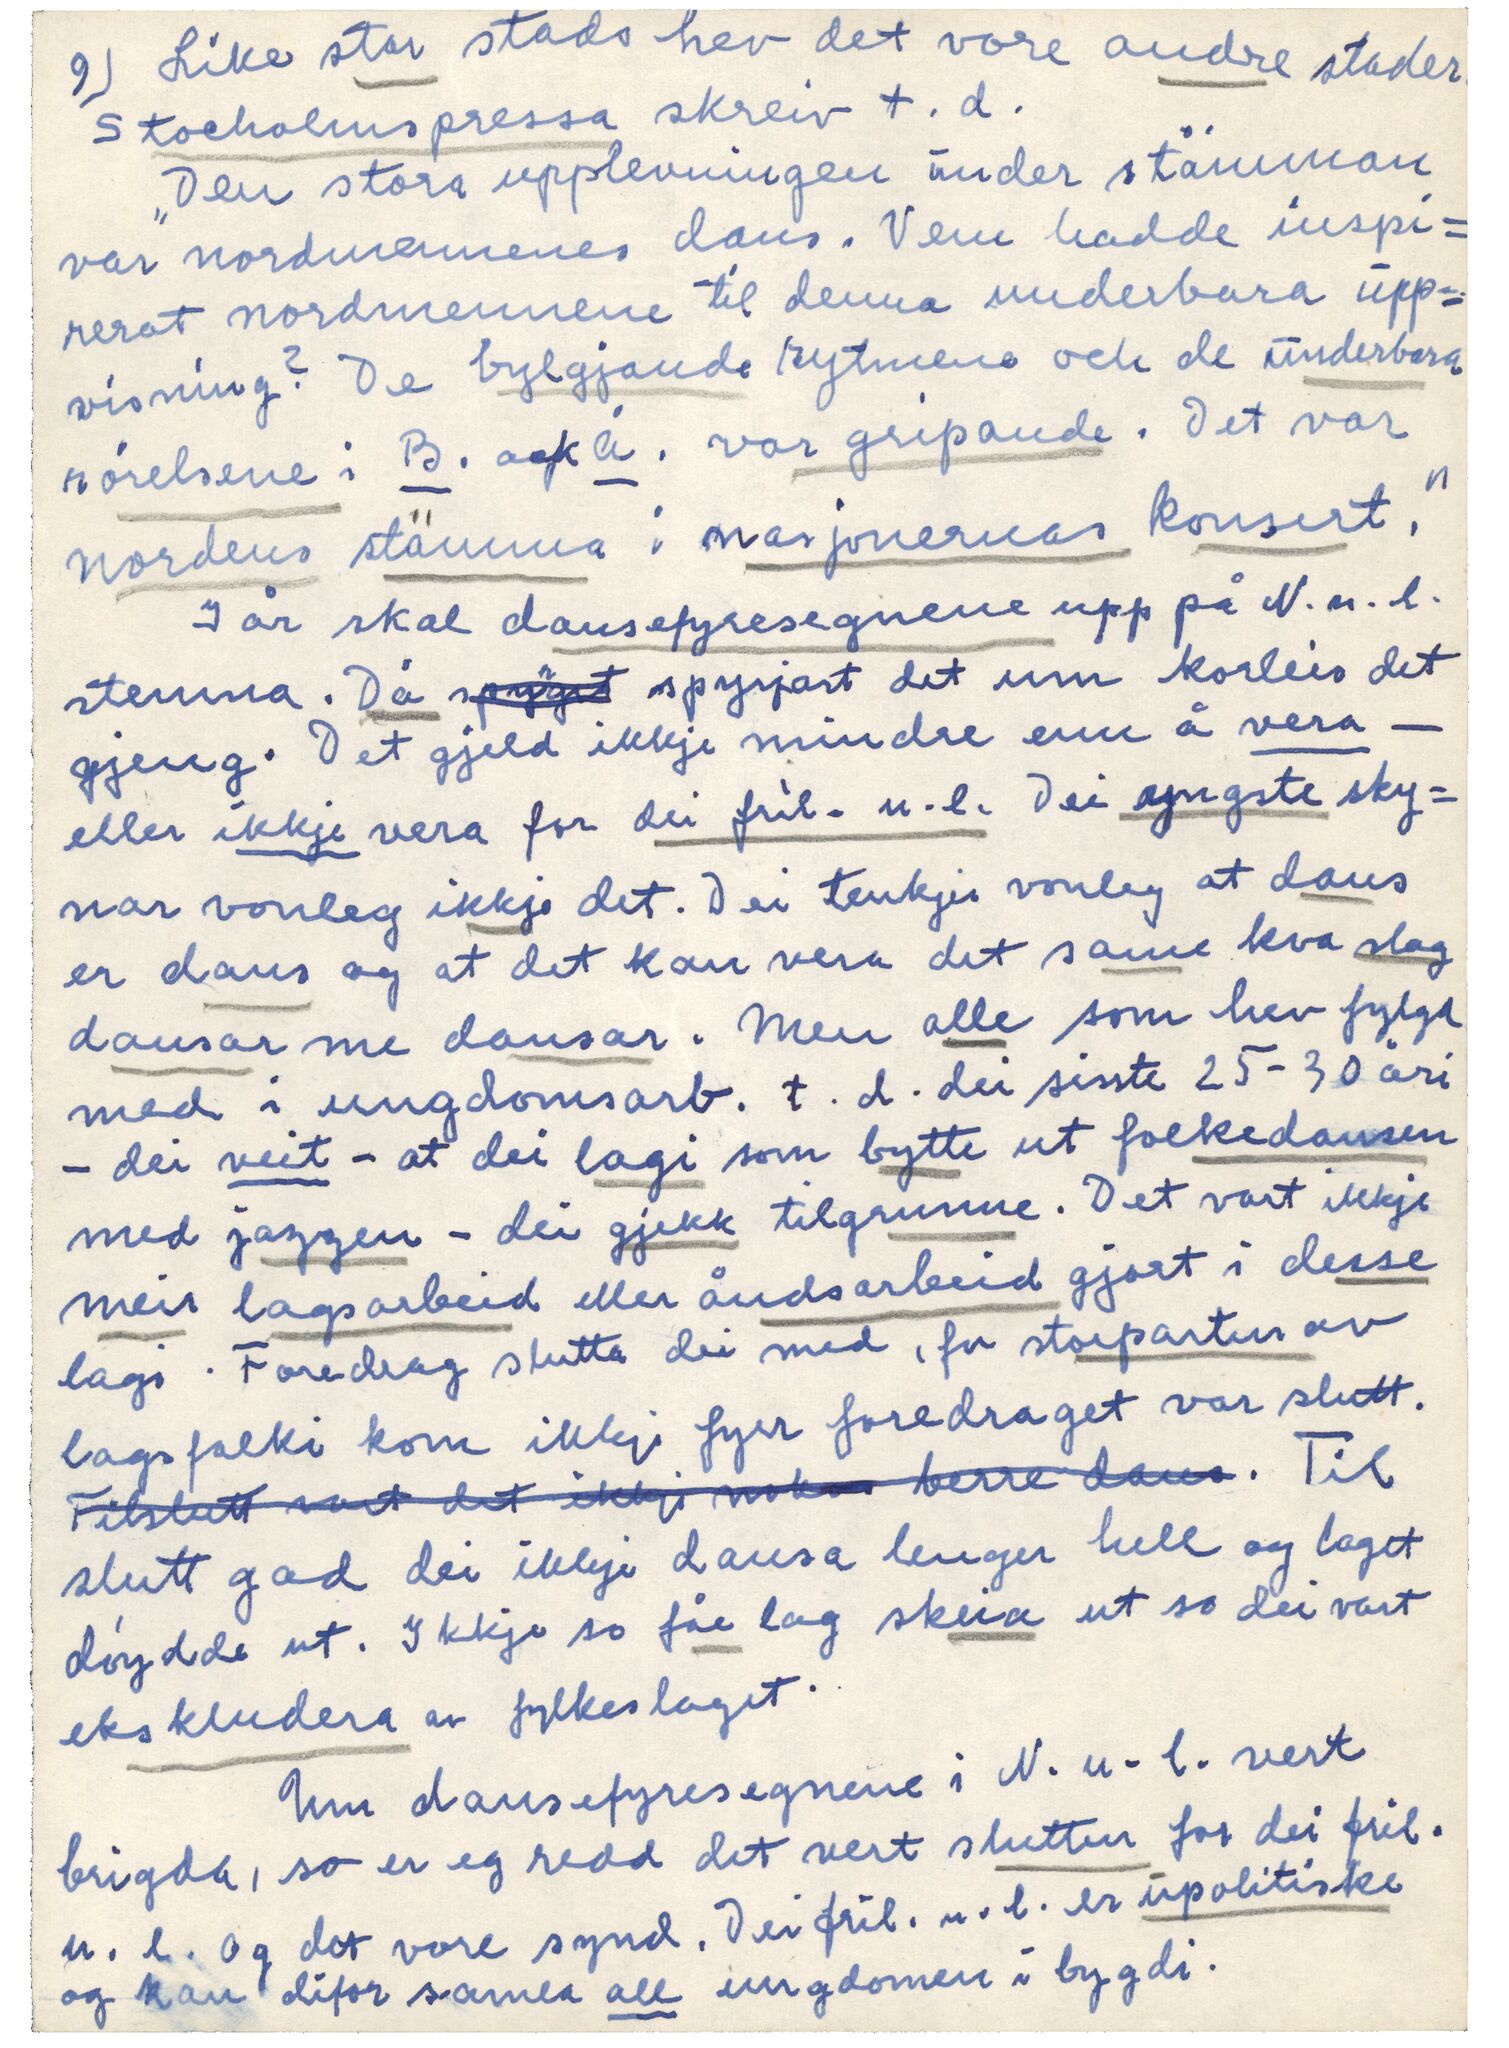 9) Like stor stads hev det vore andre stader.
Stocholmspressa skreiv t. d.
„Den stora upplevningen under stämman
var nordmennenes dans. Vem hadde inspi=
rerat nordmennene til denna underbara upp=
visning? De bylgjande rytmene och de underbara
rörelsene i B. och Å. var gripande. Det var
nordens stämma i nasjonernas konsert."
I år skal dansefyresegnene upp på N.u.l.
stemna. Då spyrjast det um korleis det
gjeng. Det gjeld ikkje mindre enn å vera —
eller ikkje vera for dei fril. u.l. Dei yngste sky=
nar vonleg ikkje det. Dei tenkjer vonleg at dans
er dans og at det kan vera det same kva slag
dansar me dansar. Men alle som hev fylgt
med i ungdomsarb. t. d. dei siste 25-30 åri
- dei veit - at dei lagi som bytte ut folkedansen
med jazzen - dei gjekk tilgrunne. Det vart ikkje
meir lagsarbeid eller åndsarbeid gjort i desse
lagi. Foredrag slutta dei med, for storparten av
lagsfolki kom ikkje fyrr foredraget var slutt.
Tilslutt vart det ikkje noko berre dans. Til
slutt gad dei ikkje dansa lenger hell og laget
döydde ut. Ikkje so fåe lag skeia ut so dei vart
ekskludera av fylkeslaget.
Um dansefyresegnene i N.u.l. vert
brigda, so er eg redd det vert slutten for dei fril.
u.l. og det vore synd. Dei fril. u.l. er upolitiske
og kan difor samla all ungdomen i bygdi.